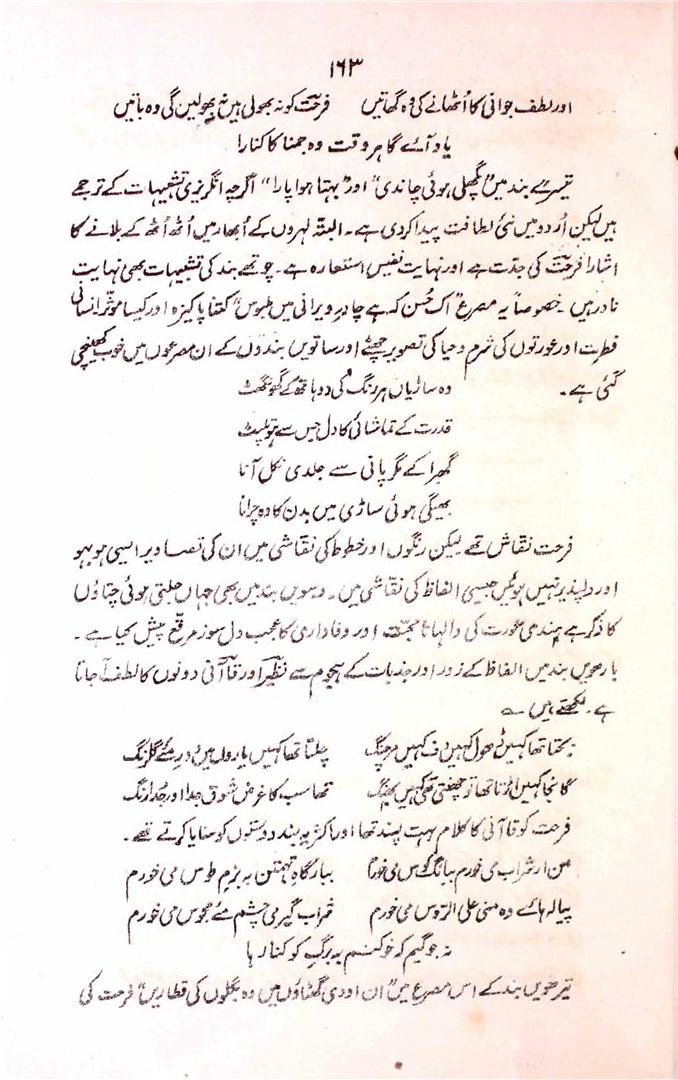 ۱۶۳
اور لطف جوانی کا اُٹھانے کی وہ گھاتیں فرحت کو نہ بھولی ہیں نہ بھولیں گی وہ باتیں
یاد آئے گا ہر وقت وہ جمنا کا کنارا
تیسرے بند میں "پگھلی ہوئی چاندی" اور "بہتا ہوا پارا" اگرچہ انگریزی تشبیہات کے ترجمے
ہیں لیکن اُردو میں نئی لطافت پیدا کردی ہے۔ البتہ لہروں کے اُبھار میں اُٹھ اُٹھ کے بلانے کا
اشارا فرحت کی جدّت ہے اور نہایت نفیس استعارہ ہے۔ چوتھے بند کی تشبیہات بھی نہایت
نادر ہیں۔ خصوصاً یہ مصرع "اک حُسن کہ ہے چادرِ ویرانی میں ملبوس" کتنا پاکیزہ اور کیسا موثر انسانی
فطرت اور عورتوں کی شرم و حیا کی تصویر چھٹے اور ساتویں بندوں کے ان مصرعوں میں خوب کھینچی
گئی ہے۔
وہ ساڑیاں ہر رنگ کی دو ہاتھ کے گھونگھٹ
قدرت کے تماشائی کا دل جس سے ہو تلپٹ
گھبرا کے مگر پانی سے جلدی نکل آنا
بھیگی ہوئی ساڑی میں بدن کا وہ چرانا
فرحت نقاش تھے لیکن رنگوں اور خطوط کی نقاشی میں ان کی تصاویر ایسی ہوبہو
اور دلپذیر نہیں ہوئیں جیسی الفاظ کی نقاشی میں۔ دسویں بند میں بھی جہاں جلتی ہوئی چتاؤں
کا ذکر ہے ہندی عورت کی والہانا محبّت اور وفاداری کا عجب دل سوز مرقّع پیش کیا ہے۔
بارھویں بند میں الفاظ کے زور اور جذبات کے ہجوم سے نظیر اور قاآنی دونوں کا لطف آجاتا
ہے۔ لکھتے ہیں ؎
بجتا تھا کہیں ڈھول کہیں دف کہیں مرچنگ چلتا تھا کہیں یاروں میں دورِ مئے گلرنگ
گانجا کہیں اڑتا تھا تو چھنتی تھی کہیں بھنگ تھا سب کا غرض شوق جدا اور جدا رنگ
فرحت کو قاآنی کا کلام بہت پسند تھا اور اکثر یہ بند دوستوں کو سنایا کرتے تھے۔
من ار شراب می خورم ببانگ کوس می خورم ببارگاہِ تہمتن بہ بزمِ طوس می خورم
پیالہ ہائے دہ منی علی الرّوس می خورم شراب گبر می چشم مئے مجوس می خورم
نہ جوگیم کہ خو کنم بہ برگِ کو کنار ہا
تیرھویں بند کے اس مصرع میں "ان اودی گھٹاؤں میں وہ بگلوں کی قطاریں" فرحت کی